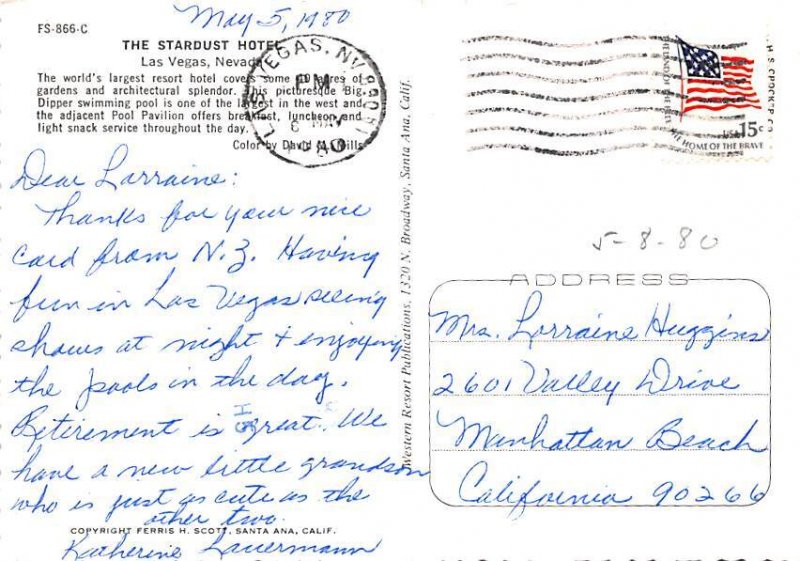 May 5, 1980
FS-866-C
THE STARDUST HOTEL
Las Vegas, Nevada
The world's largest resort hotel covers some acres of
gardens and architectural splendor. This picturesque Big
Dipper swimming pool is one of the largest in the west and
the adjacent Pool Pavilion offers breakfast, luncheon and
light snack service throughout the day.
Color by David Mills
LAS VEGAS, NV
PM
MAY
Dear Lorraine:
Thanks for your nice
card from N.Z. Having
fun in Las Vegas seeing
shows at night + enjoying
the pools in the day.
Retirement is great. We
have a new little grandson
who is just as cute as the
other two.
COPYRIGHT FERRIS H. SCOTT, SANTA ANA, CALIF.
Katherine Lauermann
Western Resort Publications, 1320 N. Broadway, Santa Ana, Calif.
USA 15c
THE HOME OF THE BRAVE
5-8-80
ADDRESS
Mrs. Lorraine Huggins
2601 Valley Drive
Manhattan Beach
California 90266